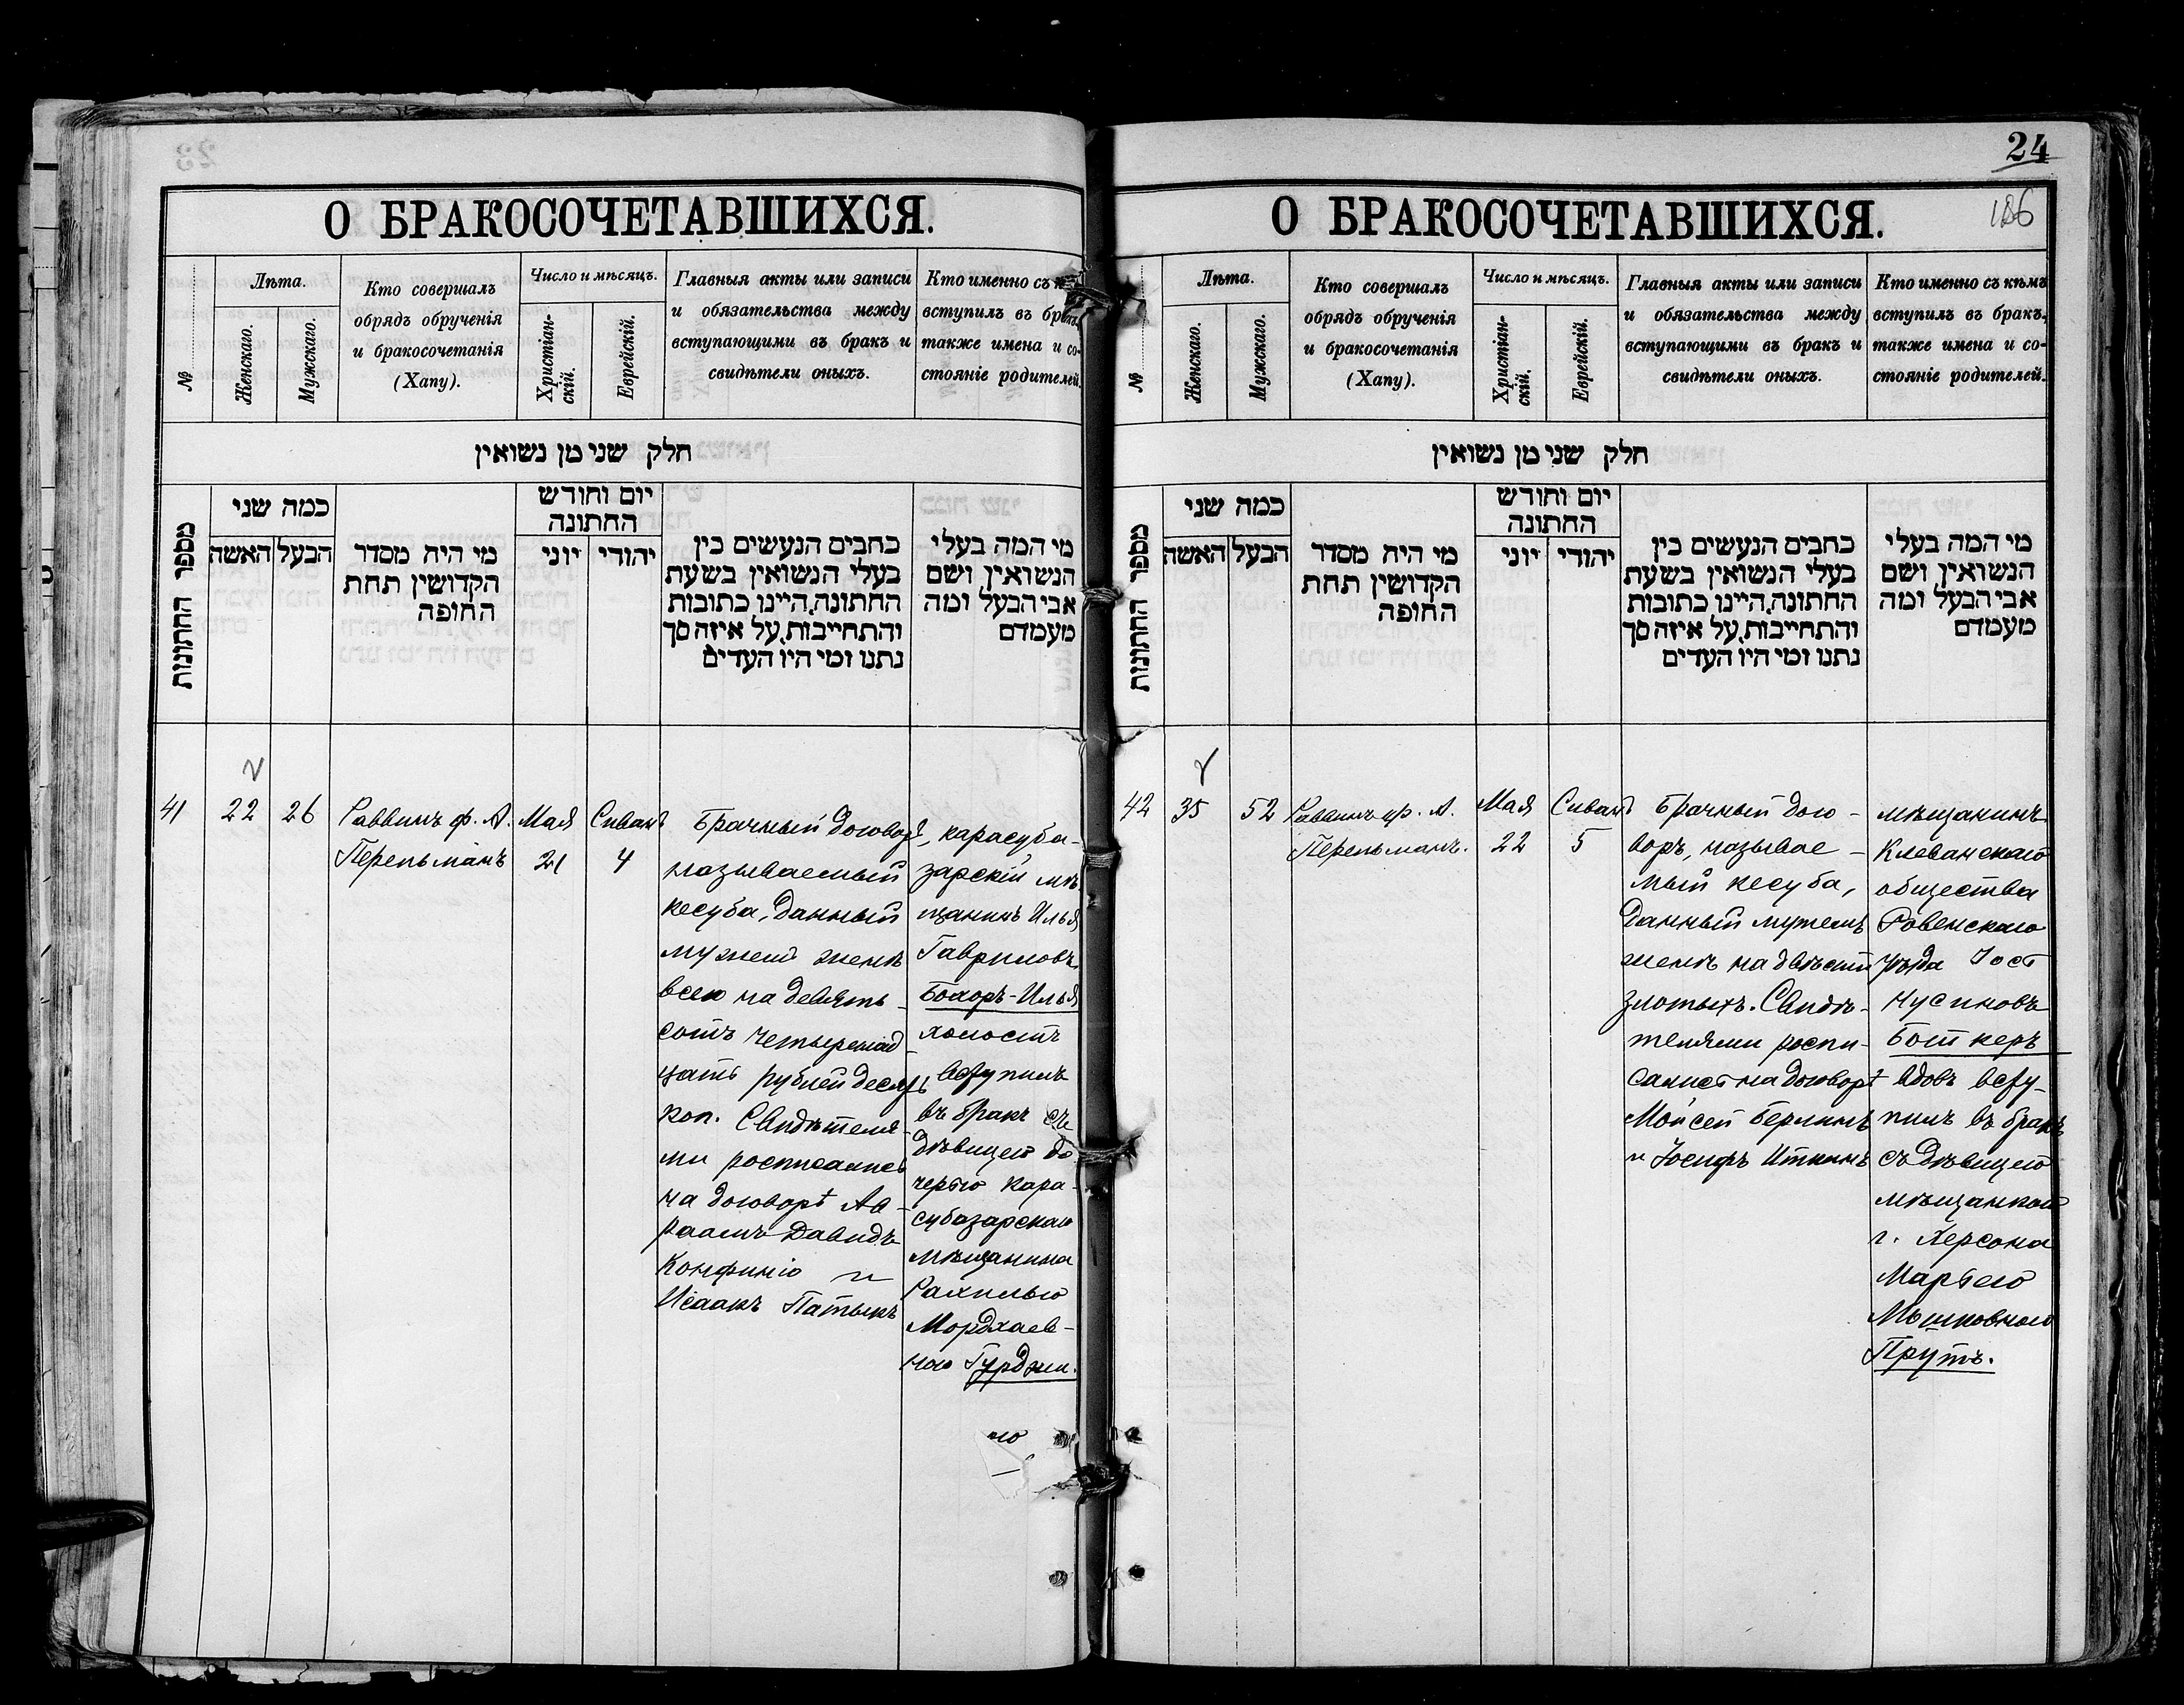 24
О БРАКОСОЧЕТАВШИХСЯ.
№
Лѣта.
Женскаго.
Мужскаго.
Кто совершалъ
обрядъ обрученія
и бракосочетанія
(Хапу).
Число и мѣсяцъ.
Христіан-
скій.
Еврейскій.
Главныя акты или записи
и обязательства между
вступающими въ бракъ и
свидѣтели оныхъ.
Кто именно съ
вступилъ въ
также имена и со-
стояніе родителей.
חלק שני מן נשואין
מספר החתונות
כמה שני
האשה
הבעל
מי היה מסדר
הקדושין תחת
החופה
יום וחודש
החתונה
יוני
יהודי
כתבים הנעשים בין
בעלי הנשואין בשעת
החתונה, היינו כתובות
והתחייבות, על איזה סך
נתנו ומי היו העדים
מי המה בעלי
הנשואין, ושם
אבי הבעל ומה
מעמדם
41
22
26
Раввинъ ф. А.
Перельманъ
Мая
21
Сиванъ
4
Брачный договоръ,
называемый
кесуба, данный
мужемъ женѣ
всего на девять-
сотъ четырнад
цать рублей десять
коп. Свидѣтеля-
ми росписались
на договорѣ Ав-
раамъ Давидъ
Конфино и
Исаакъ Патыкъ
карасуба-
зарскій мѣ-
щанинъ Илья
Гавриловъ
Бохоръ-Илья
холостъ
вступилъ
въ бракъ съ
дѣвицей до-
черью кара-
субазарскаго
мѣщанина
Рахилью
Мордхаев-
ною Гурджи.
О БРАКОСОЧЕТАВШИХСЯ.
186
№
Лѣта.
Женскаго.
Мужскаго.
Кто совершалъ
обрядъ обрученія
и бракосочетанія
(Хапу).
Число и мѣсяцъ.
Христіан-
скій.
Еврейскій.
Главныя акты или записи
и обязательства между
вступающими въ бракъ и
свидѣтели оныхъ.
Кто именно съ кѣмъ
вступилъ въ бракъ,
также имена и со-
стояніе родителей.
חלק שני מן נשואין
מספר החתונות
כמה שני
האשה
הבעל
מי היה מסדר
הקדושין תחת
החופה
יום וחודש
החתונה
יוני
יהודי
כתבים הנעשים בין
בעלי הנשואין בשעת
החתונה, היינו כתובות
והתחייבות, על איזה סך
נתנו ומי היו העדים
מי המה בעלי
הנשואין, ושם
אבי הבעל ומה
מעמדם
42
35
52
Раввинъ ф. А.
Перельманъ.
Мая
22
Сиванъ
5
Брачный дого-
воръ, называе-
мый кесуба,
данный мужемъ
женѣ на двѣсти
злотыхъ. Свидѣ-
телями роспи-
сались на договорѣ
Мойсей Берлинъ
и Іосифъ Иткинъ
мѣщанинъ
Клеванскаго
общества
Ровенскаго
уѣзда Іосъ
Нусиновъ
Боткеръ
вдовъ всту-
пилъ въ бракъ
съ дѣвицею
мѣщанкой
г. Херсона
Марьею
Мошковною
Прутъ.